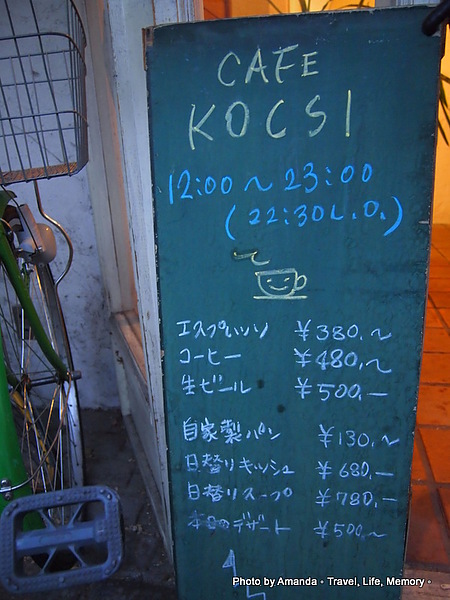 CAFE
KOCSI
12:00 ～ 23:00
(22:30 L.O.)
エスプレッソ ¥380,～
コーヒー ¥480,～
生ビール ¥500,—
自家製パン ¥130,～
日替りキッシュ ¥680,—
日替りスープ ¥780,—
本日のデザート ¥500～
Photo by Amanda・Travel, Life, Memory・